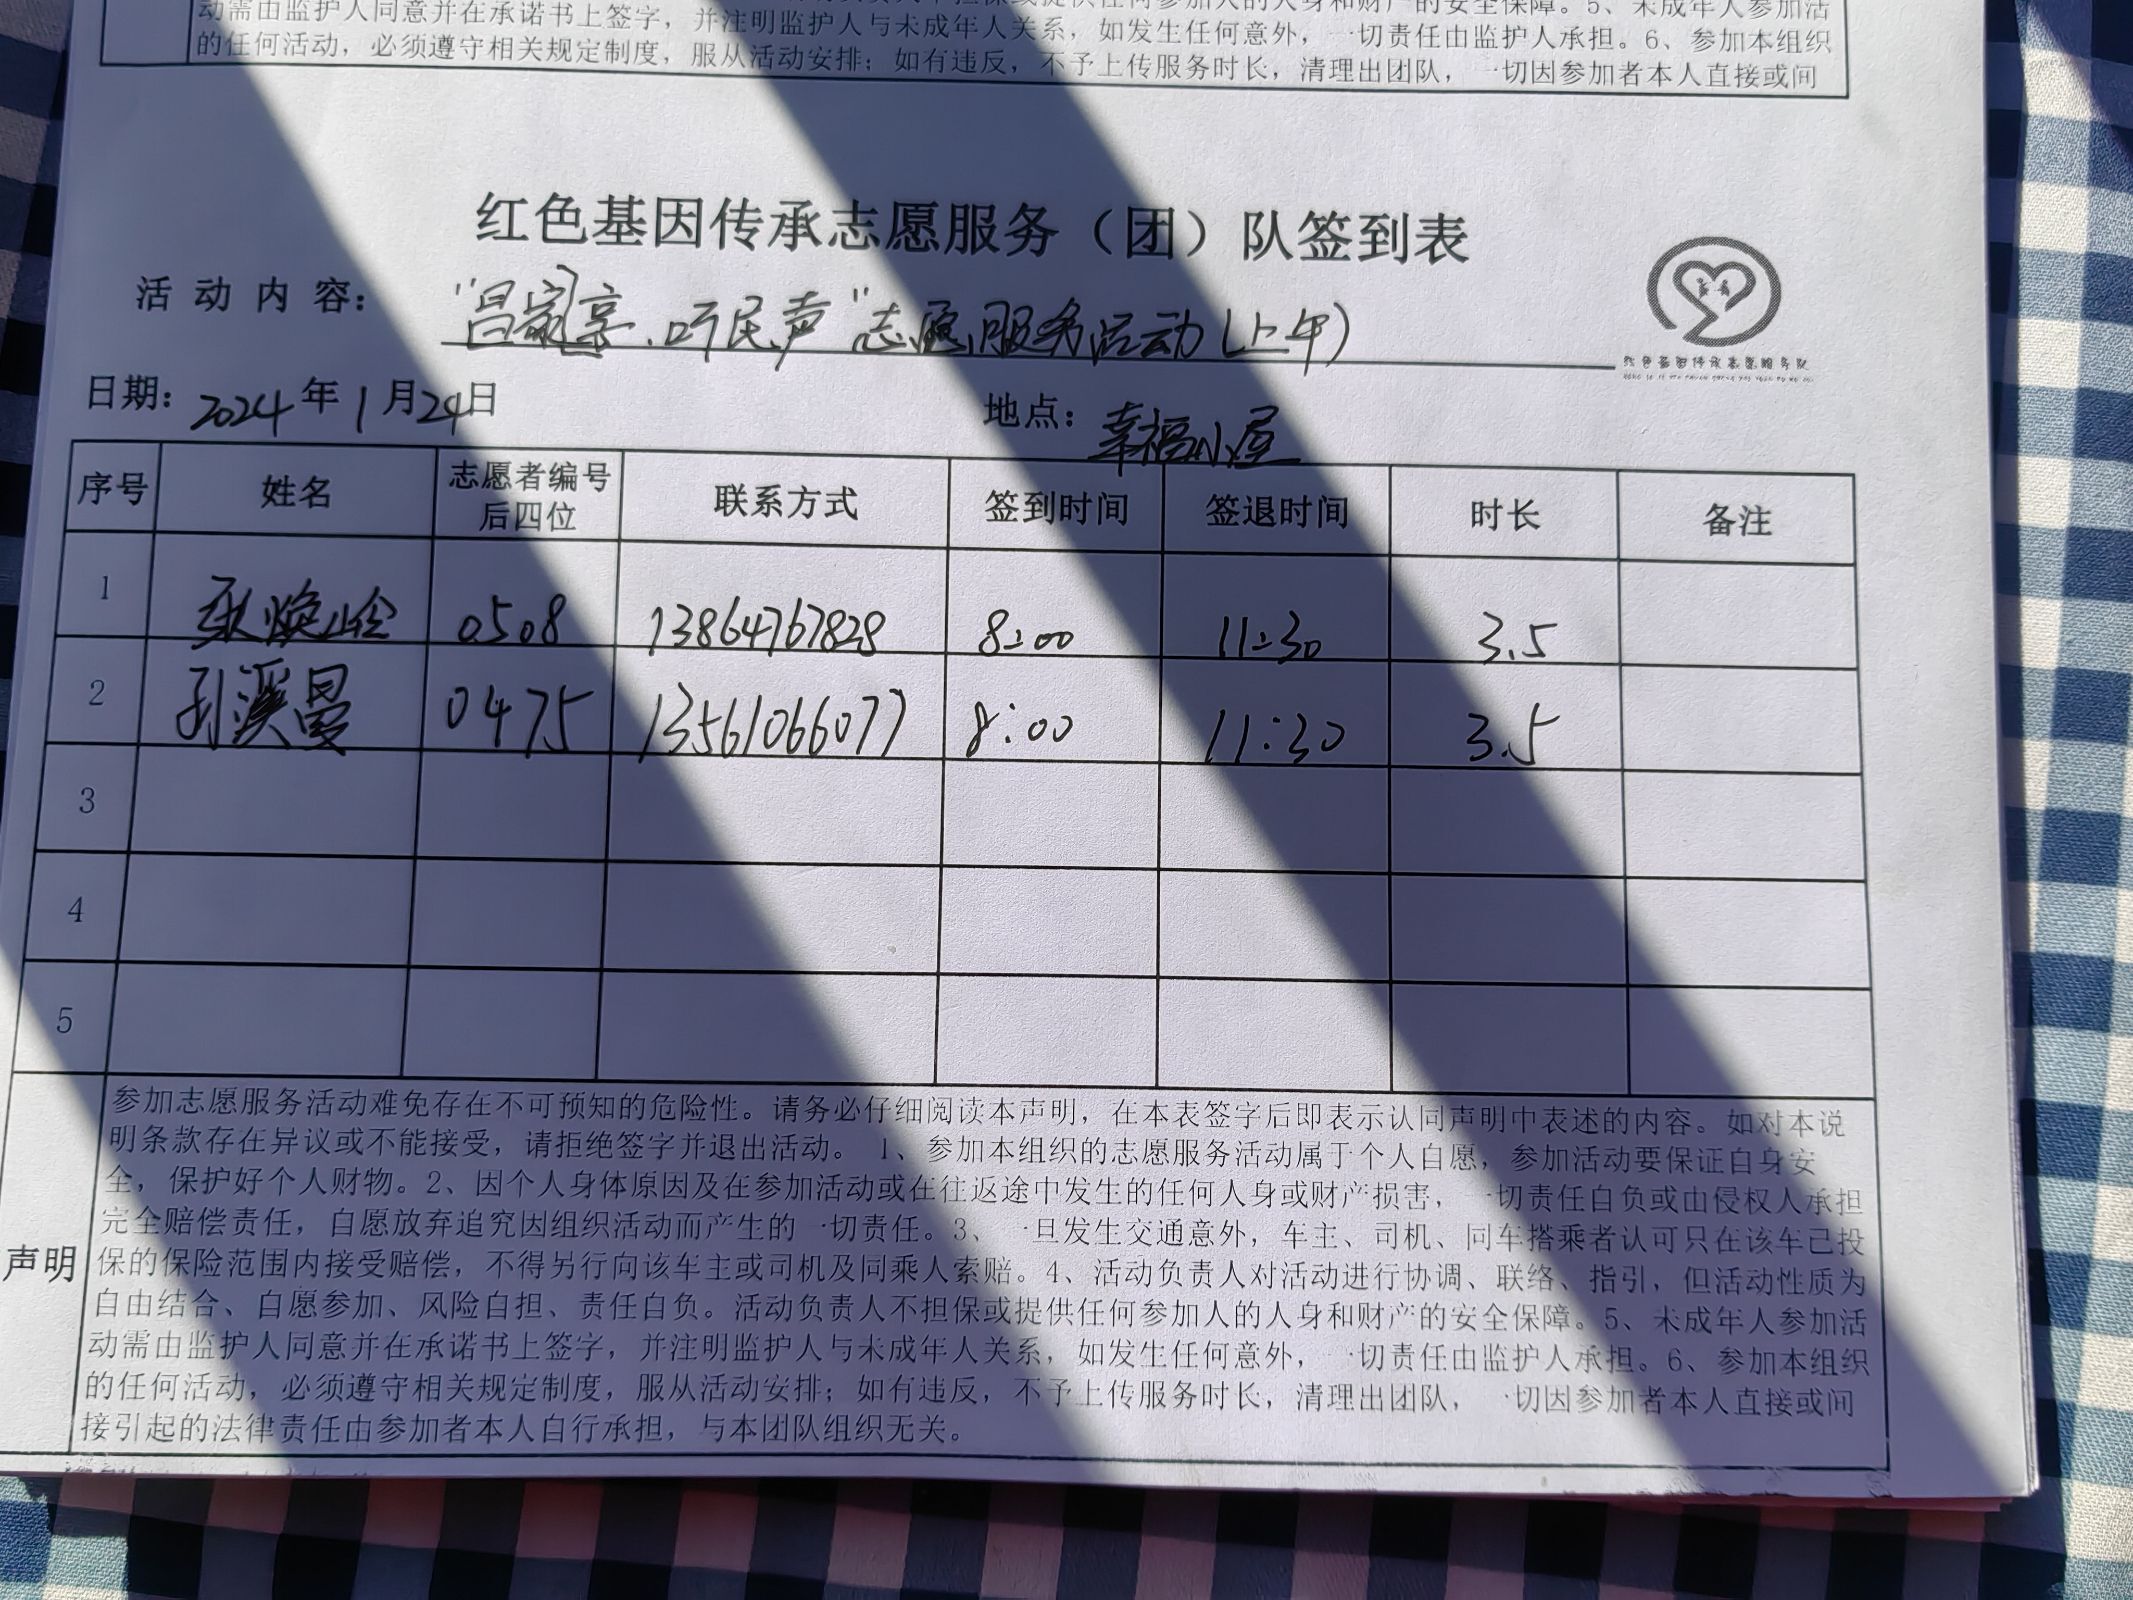 动需由监护人同意并在承诺书上签字，并注明监护人与未成年人关系，如发生任何意外，一切责任由监护人承担。6、参加本组织
的任何活动，必须遵守相关规定制度，服从活动安排；如有违反，不予上传服务时长，清理出团队，一切因参加者本人直接或间
红色基因传承志愿服务（团）队签到表
活动内容： 听民声”志愿服务活动（上午）
红色基因传承志愿服务队
日期：2024年1月24日 地点：幸福小屋
序号 姓名 志愿者编号后四位 联系方式 签到时间 签退时间 时长 备注
1 0508 13864767828 8:00 11:30 3.5
2 孙溪曼 0475 13561066077 8:00 11:30 3.5
3
4
5
声明
参加志愿服务活动难免存在不可预知的危险性。请务必仔细阅读本声明，在本表签字后即表示认同声明中表述的内容。如对本说
明条款存在异议或不能接受，请拒绝签字并退出活动。1、参加本组织的志愿服务活动属于个人自愿，参加活动要保证自身安
全，保护好个人财物。2、因个人身体原因及在参加活动或在往返途中发生的任何人身或财产损害，一切责任自负或由侵权人承担
完全赔偿责任，自愿放弃追究因组织活动而产生的一切责任。3、一旦发生交通意外，车主、司机、同车搭乘者认可只在该车已投
保的保险范围内接受赔偿，不得另行向该车主或司机及同乘人索赔。4、活动负责人对活动进行协调、联络、指引，但活动性质为
自由结合、自愿参加、风险自担、责任自负。活动负责人不担保或提供任何参加人的人身和财产的安全保障。5、未成年人参加活
动需由监护人同意并在承诺书上签字，并注明监护人与未成年人关系，如发生任何意外，一切责任由监护人承担。6、参加本组织
的任何活动，必须遵守相关规定制度，服从活动安排；如有违反，不予上传服务时长，清理出团队，一切因参加者本人直接或间
接引起的法律责任由参加者本人自行承担，与本团队组织无关。